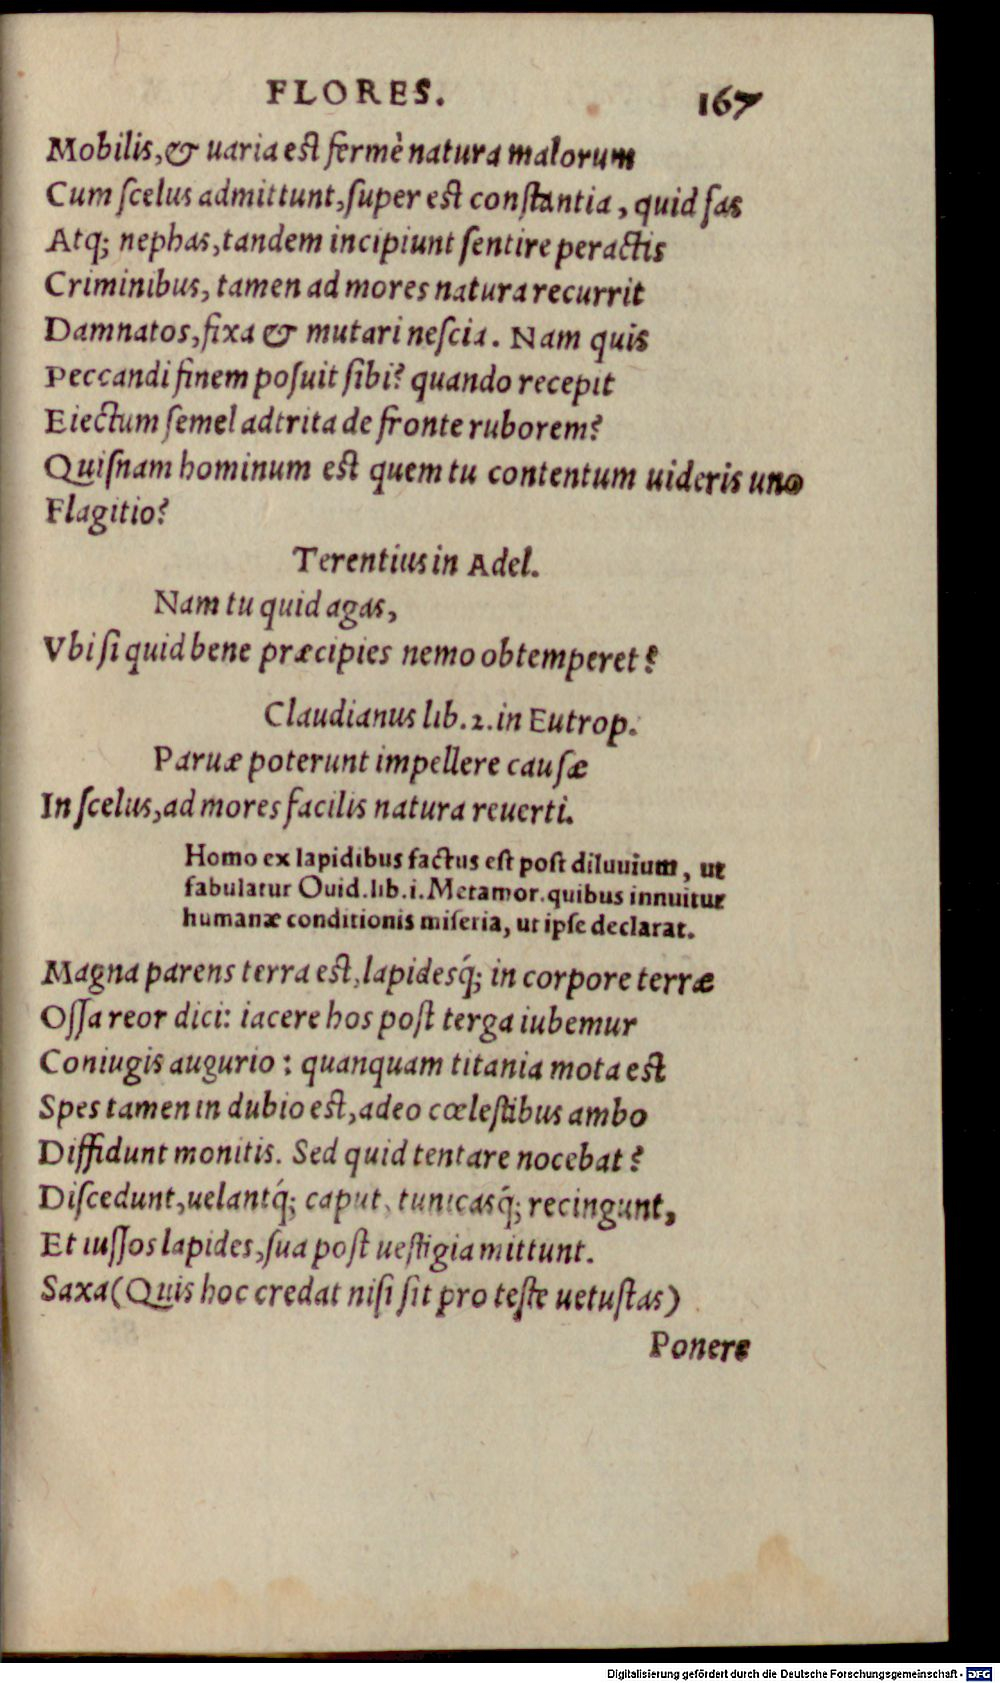 FLORES. 167
Mobilis, & uaria est fermè natura malorum
Cum scelus admittunt, super est constantia, quid fas
Atq; nephas, tandem incipiunt sentire peractis
Criminibus, tamen ad mores natura recurrit
Damnatos, fixa & mutari nescia. Nam quis
Peccandi finem posuit sibi? quando recepit
Eiectum semel adtrita de fronte ruborem?
Quisnam hominum est quem tu contentum uideris uno
Flagitio?
Terentius in Adel.
Nam tu quid agas,
Vbi si quid bene præcipies nemo obtemperet?
Claudianus lib. 2. in Eutrop.
Paruæ poterunt impellere causæ
In scelus, ad mores facilis natura reuerti.
Homo ex lapidibus factus est post diluuium, ut
fabulatur Ouid. lib. i. Metamor. quibus innuitur
humanæ conditionis miseria, ut ipse declarat.
Magna parens terra est, lapidesq́; in corpore terræ
Ossa reor dici: iacere hos post terga iubemur
Coniugis augurio: quanquam titania mota est
Spes tamen in dubio est, adeo cœlestibus ambo
Diffidunt monitis. Sed quid tentare nocebat?
Discedunt, uelantq́; caput, tunicasq́; recingunt,
Et iussos lapides, sua post uestigia mittunt.
Saxa (Quis hoc credat nisi sit pro teste uetustas)
Ponere
Digitalisierung gefördert durch die Deutsche Forschungsgemeinschaft - DFG